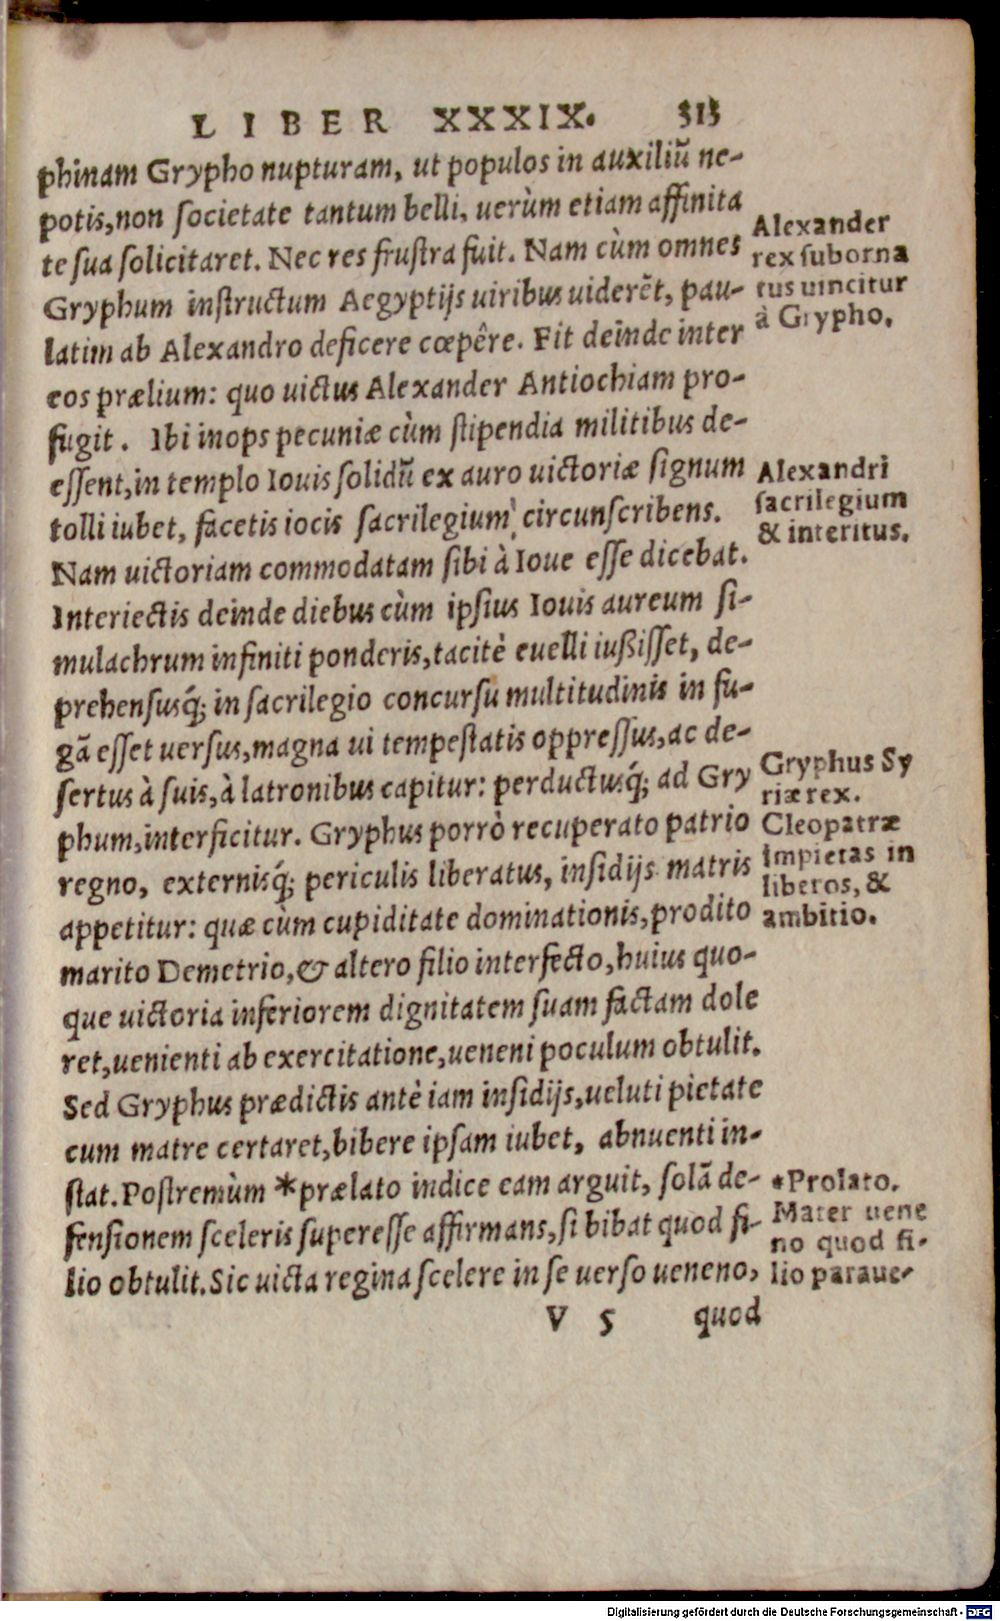 LIBER XXXIX. 313
phinam Grypho nupturam, ut populos in auxiliũ ne-
potis, non ſocietate tantum belli, uerùm etiam affinita
te ſua ſolicitaret. Nec res fruſtra fuit. Nam cùm omnes
Gryphum inſtructum Aegyptijs uiribus uiderẽt, pau-
latim ab Alexandro deficere cœpêre. Fit deinde inter
eos prælium: quo uictus Alexander Antiochiam pro-
fugit. Ibi inops pecuniæ cùm ſtipendia militibus de-
eſſent, in templo Iouis ſolidũ ex auro uictoriæ ſignum
tolli iubet, facetis iocis ſacrilegium circunſcribens.
Nam uictoriam commodatam ſibi à Ioue eſſe dicebat.
Interiectis deinde diebus cùm ipſius Iouis aureum ſi-
mulachrum infiniti ponderis, tacitè euelli iußiſſet, de-
prehenſusq́; in ſacrilegio concurſu multitudinis in fu-
gã eſſet uerſus, magna ui tempeſtatis oppreſſus, ac de-
ſertus à ſuis, à latronibus capitur: perductusq́; ad Gry
phum, interficitur. Gryphus porrò recuperato patrio
regno, externisq́; periculis liberatus, inſidijs matris
appetitur: quæ cùm cupiditate dominationis, prodito
marito Demetrio, & altero filio interfecto, huius quo-
que uictoria inferiorem dignitatem ſuam factam dole
ret, uenienti ab exercitatione, ueneni poculum obtulit.
Sed Gryphus prædictis antè iam inſidijs, ueluti pietate
cum matre certaret, bibere ipſam iubet, abnuenti in-
ſtat. Poſtremùm *prælato indice eam arguit, ſolã de-
fenſionem ſceleris ſupereſſe affirmans, ſi bibat quod fi-
lio obtulit. Sic uicta regina ſcelere in ſe uerſo ueneno,
V 5 quod
Alexander
rex ſuborna
tus uincitur
à Grypho.
Alexandri
ſacrilegium
& interitus.
Gryphus Sy
riæ rex.
Cleopatræ
impietas in
liberos, &
ambitio.
*Prolato.
Mater uene
no quod fi-
lio paraue-
Digitalisierung gefördert durch die Deutsche Forschungsgemeinschaft - DFG